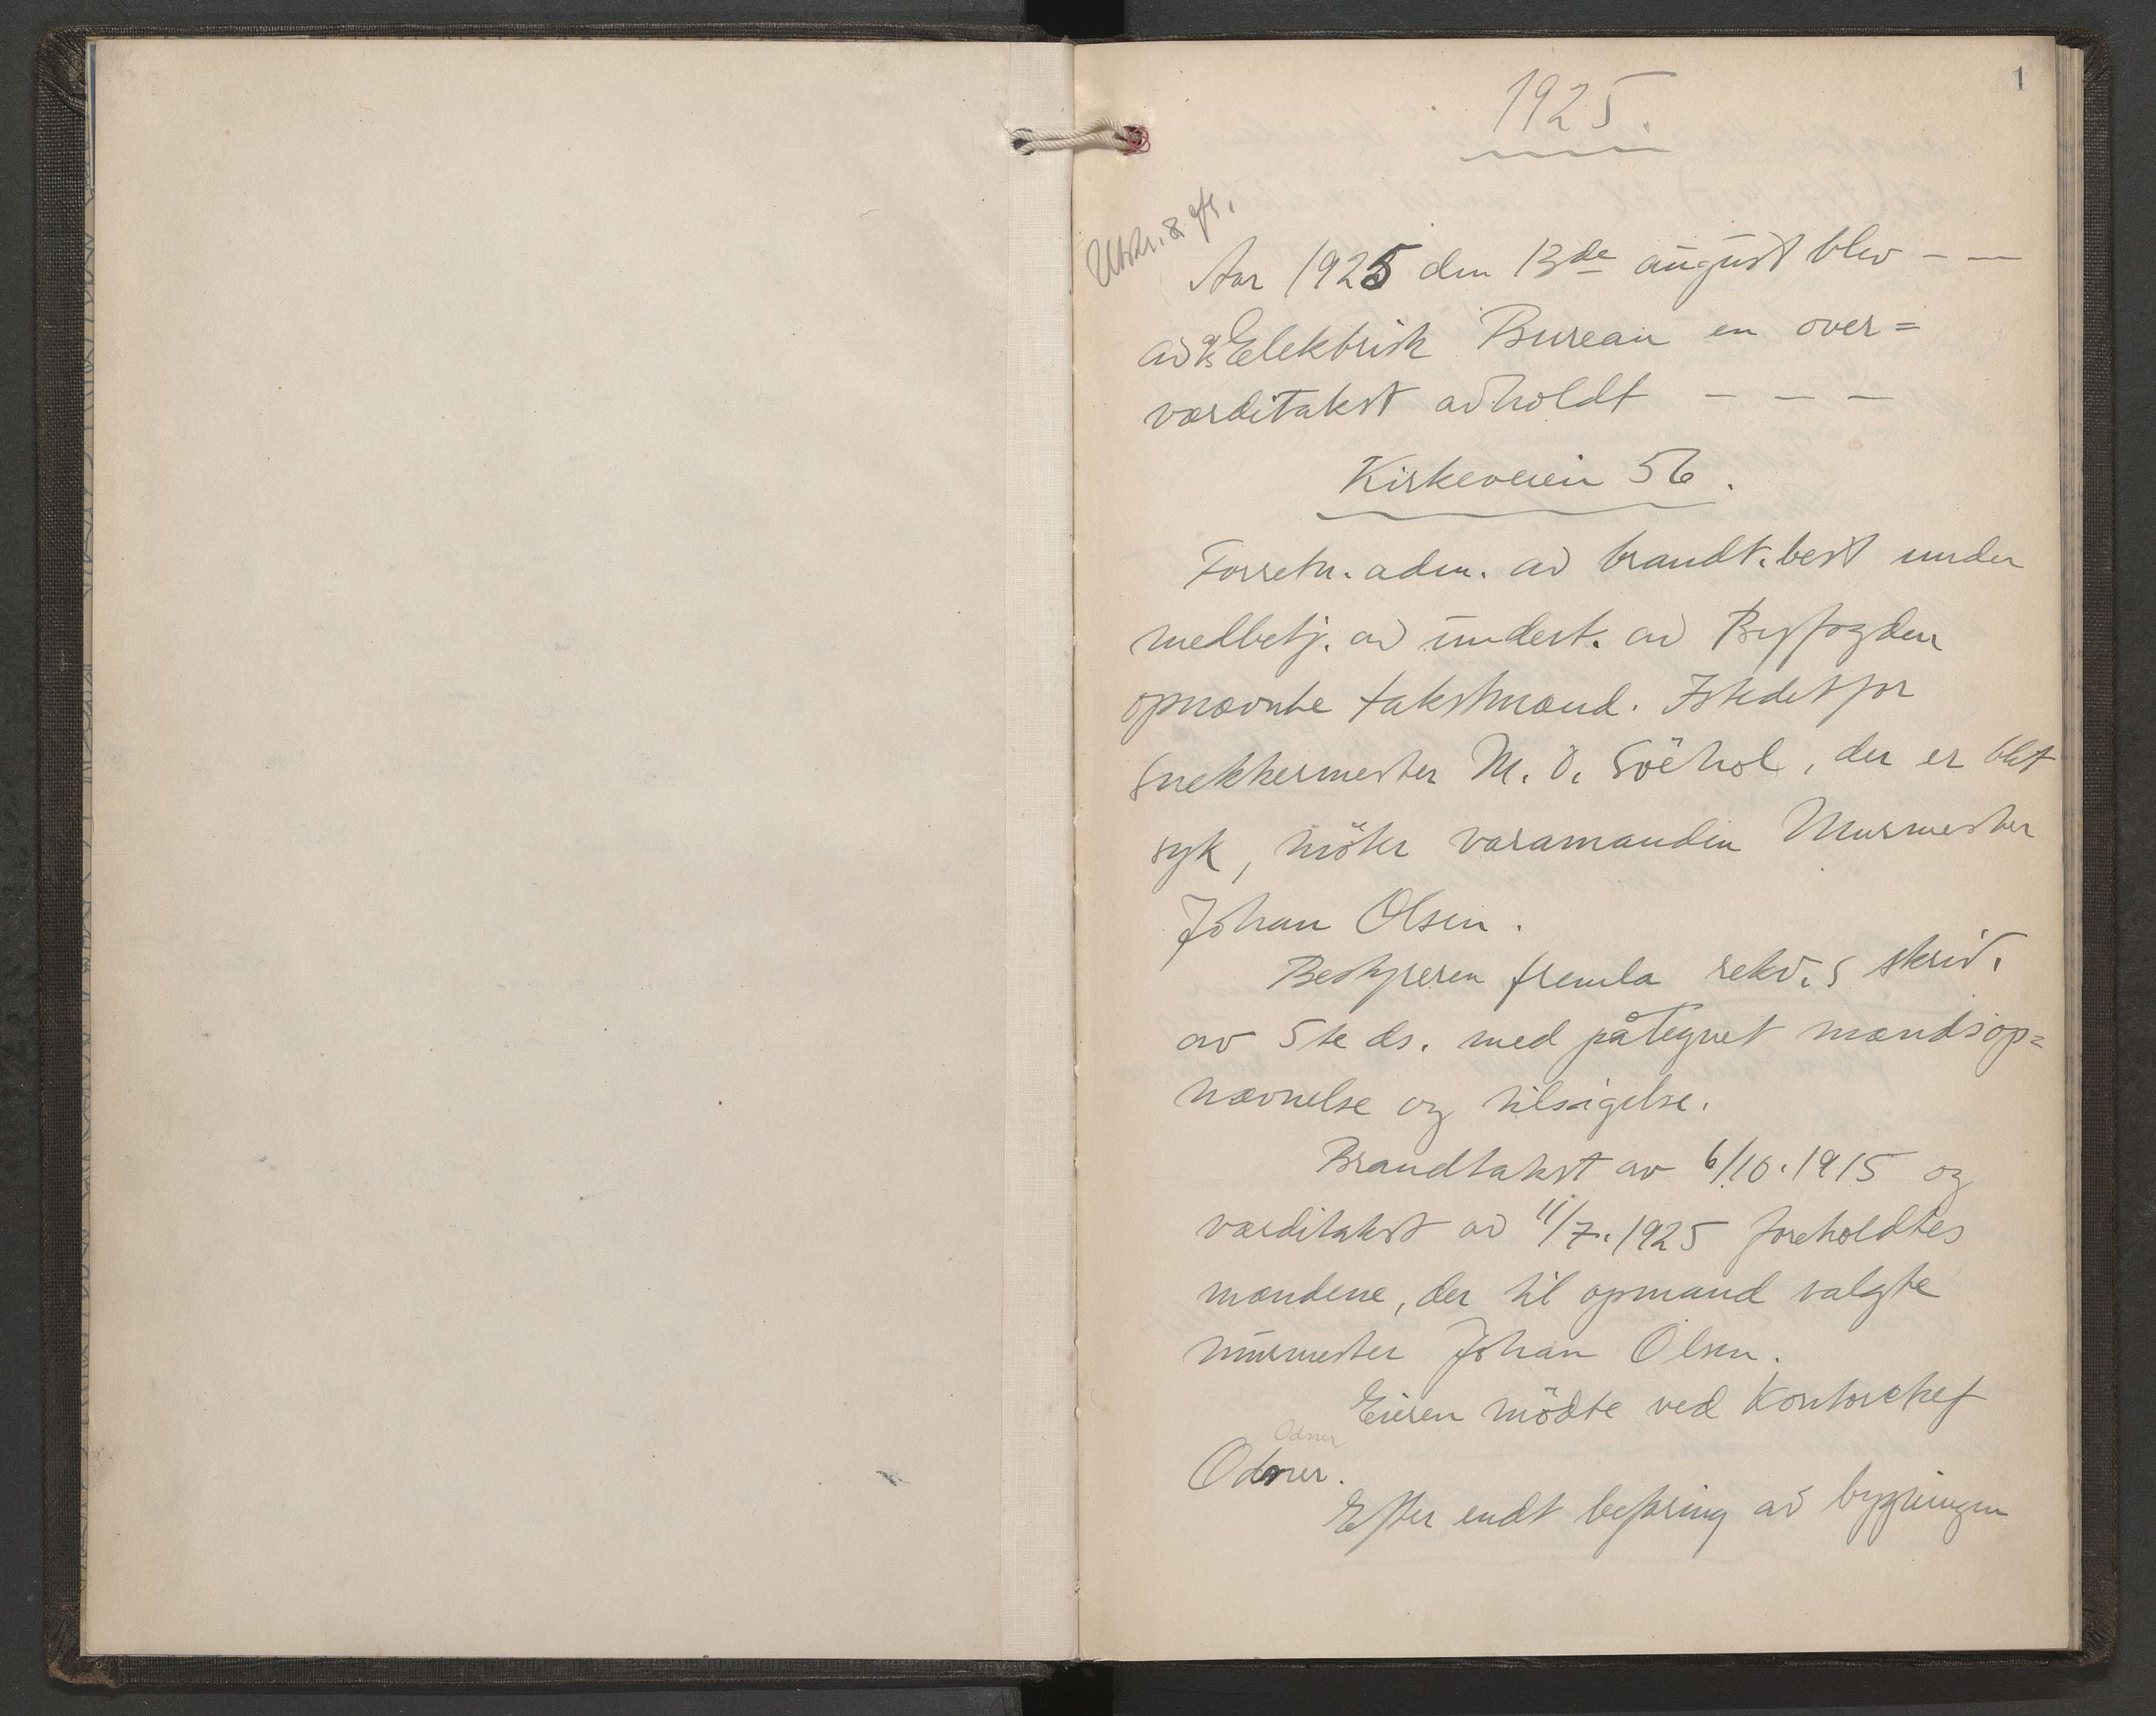 1
1925.
Utskr. & gfl.
Aar 1925 den 13de august blev - -
av A/S Elektrisk Bureau en over=
værditakst avholdt - - -
Kirkeveien 56.
Forretn. adm. av brandt. best under
medbetj. av undert. av Byfogden
opnævnte takstmænd. Istedetfor
Snekkermester M. O. , der er blit
syk, möter varamanden Murmester
Johan Olsen.
Bestyreren fremla rekv.s skriv.
av 5te ds. med påtegnet mændsop=
nævnelse og tilsigelse.
Brandtakst av 6/10.1915 og
værditakst av 11/7.1925 foreholdtes
mændene, der til opmand valgte
murmester Johan Olsen.
Eieren mödte ved Kontorchef
Odner
Odner.
Efter endt befaring av bygningen